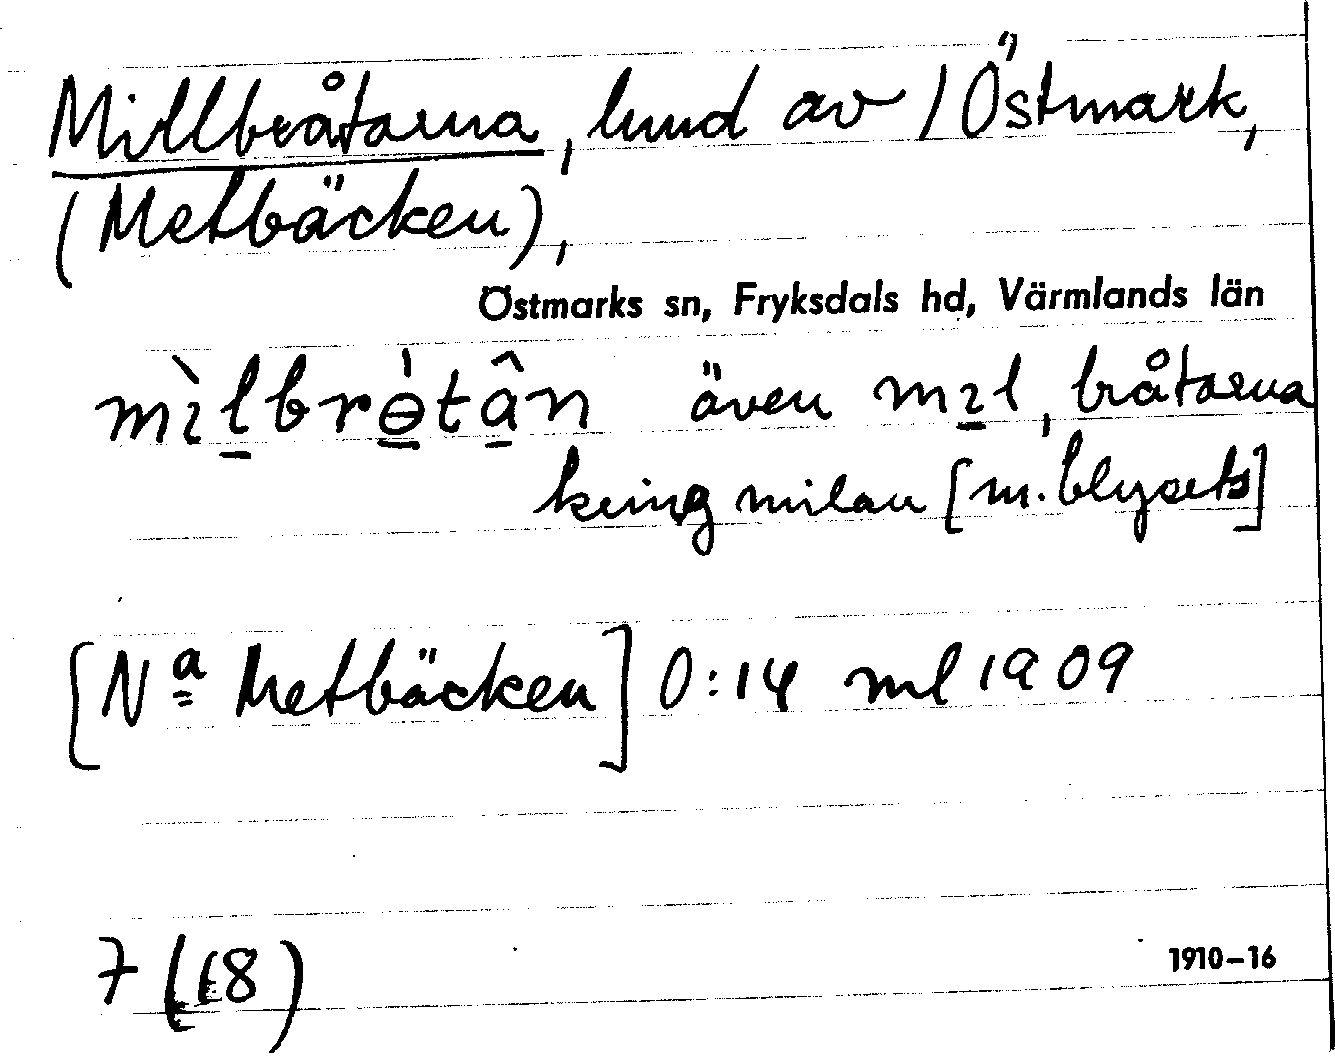 Millbråtarna, lund av 1 Östmark,
(Metbäcken),
Östmarks sn, Fryksdals hd, Värmlands län
mìlbrɵ̀tân även mɪl, bråtarna
kring milan [m. blysets]
[Nª Metbäcken] 0:14 ml 1909
7 (18)
1910–16